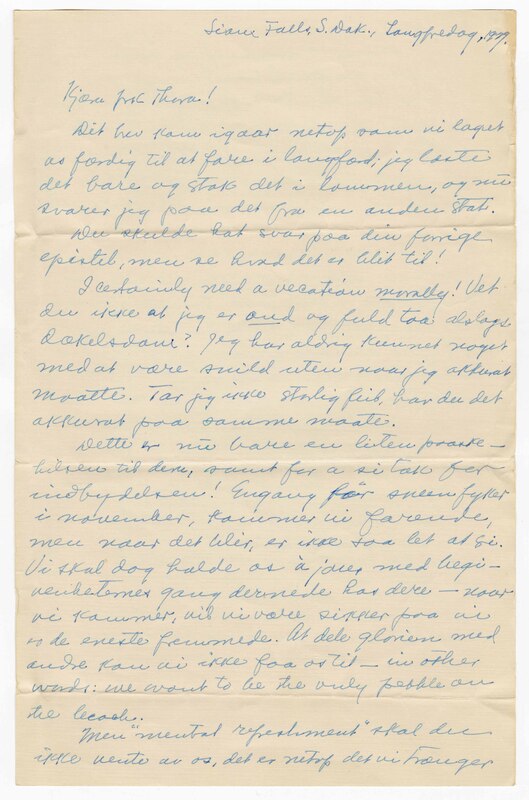 Sioux Falls, S. Dak., Langfredag, 1929.
Kjære frk Thora!
Dit brev kom igaar netop som vi laget
os færdig til at fare i langfærd; jeg læste
det bare og stak det i lommen, og nu
svarer jeg paa det fra en anden stat.
Du skulde hat svar paa din forrige
epistel, men se hvad det er blit til!
I certainly need a vecation morally! Vet
du ikke at jeg er ond og fuld taa alslags
Jeg har aldrig kunnet noget
med at være snild uten naar jeg akkurat
maatte. Tar jeg ikke feil, har du det
akkurat paa samme maate.
Dette er nu bare en liten paaske-
hilsen til dere, samt for a si tak for
indbydelsen! Engang før sneen fyker
i november, kommer vi farende,
men naar det blir, er ikke saa let at si.
Vi skal dog holde os à jour med begi-
venheternes gang dernede hos dere — naar
vi kommer, vil vi være sikker paa vi
er de eneste fremmede. At dele glorien med
andre kan vi ikke faa os til — in other
words: we want to be the only pebble on
the beach.
Men "mental refreshment" skal du
ikke vente av os, det er netop det vi trænger